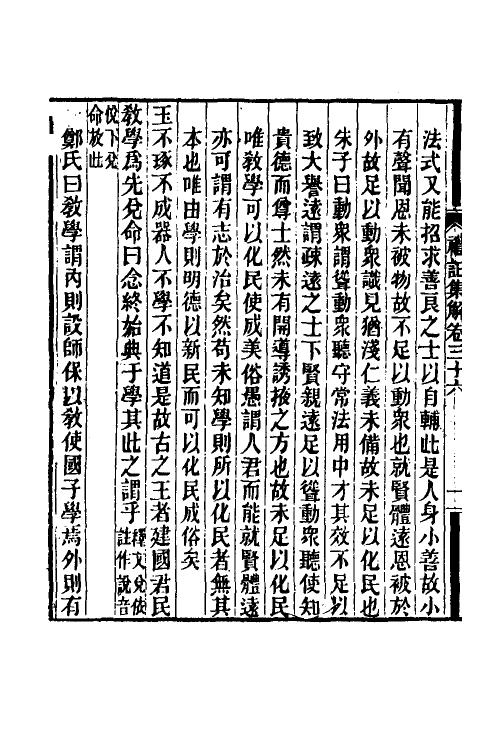 禮記集解卷三十六
法式又能招求善良之士以自輔此是人身小善故小
有聲聞恩未被物故不足以動衆也就賢體遠恩被於
外故足以動衆識見猶淺仁義未備故未足以化民也
朱子曰動衆謂聳動衆聽守常法用中才其效不足以
致大譽遠謂疎遠之士下賢親遠足以聳動衆聽使知
貴德而尊士然未有開導誘掖之方也故未足以化民
唯敎學可以化民使成美俗愚謂人君而能就賢體遠
亦可謂有志於治矣然苟未知學則所以化民者無其
本也唯由學則明德以新民而可以化民成俗矣
玉不琢不成器人不學不知道是故古之王者建國君民
敎學爲先兌命曰念終始典于學其此之謂乎釋文兌依註作說音
悅下兌命放此
鄭氏曰敎學謂內則設師保以敎使國子學焉外則有